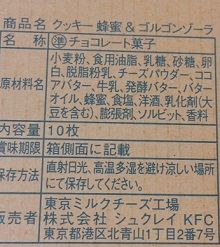 商品名 クッキー 蜂蜜＆ゴルゴンゾーラ
名称 準チョコレート菓子
原材料名 小麦粉、食用油脂、乳糖、砂糖、卵
白、脱脂粉乳、チーズパウダー、ココ
アバター、牛乳、発酵バター、バター
オイル、蜂蜜、食塩、洋酒、乳化剤(大
豆を含む)、膨張剤、ソルビット、香料
内容量 10枚
賞味期限 箱側面に記載
保存方法 直射日光、高温多湿を避け涼しい場所
に保存してください。
販売者 東京ミルクチーズ工場
株式会社 シュクレイ KFC
東京都港区北青山1丁目2番7号